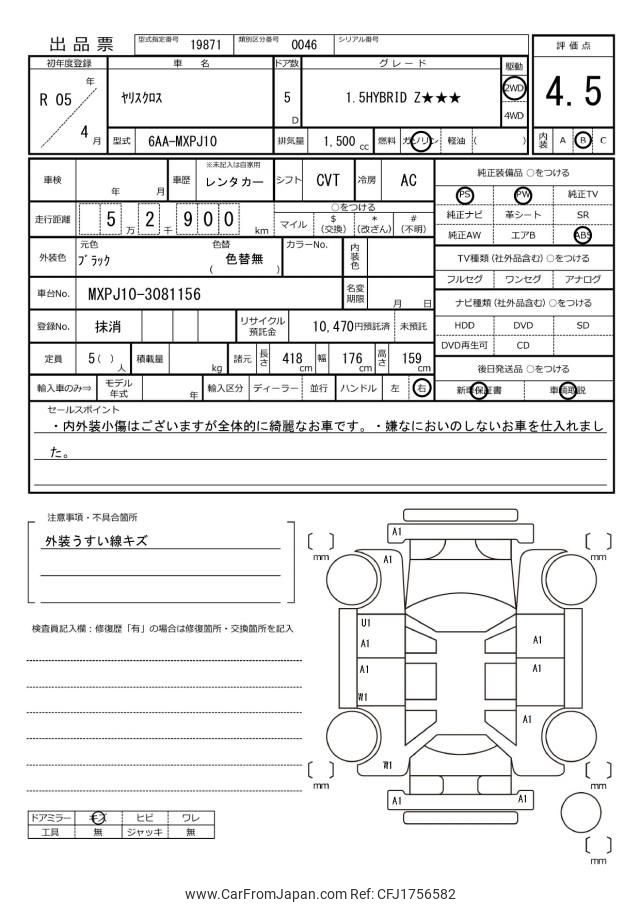 出品票 型式指定番号 19871 類別区分番号 0046 シリアル番号
評価点
4.5
内装 A B C
初年度登録 車名 ドア数 グレード 駆動
R 05 年 / 4 月 ヤリスクロス 5 D 1.5HYBRID Z★★★ 2WD 4WD
型式 6AA-MXPJ10 排気量 1,500 cc 燃料 ガソリン 軽油 ( )
車検 年 月 車歴 ※未記入は自家用 レンタカー シフト CVT 冷房 AC
走行距離 5 万 2 千 9 0 0 km
○をつける
マイル $ (交換) * (改ざん) # (不明)
外装色 元色 ブラック 色替 ( 色替無 ) カラーNo. 内装色
車台No. MXPJ10-3081156 名変期限 月 日
登録No. 抹消 リサイクル預託金 10,470円預託済 未預託
定員 5( ) 人 積載量 kg 諸元 長さ 418 cm 幅 176 cm 高さ 159 cm
輸入車のみ⇒ モデル年式 年 輸入区分 ディーラー 並行 ハンドル 左 右
純正装備品 ○をつける
PS PW 純正TV
純正ナビ 革シート SR
純正AW エアB ABS
TV種類 (社外品含む) ○をつける
フルセグ ワンセグ アナログ
ナビ種類 (社外品含む) ○をつける
HDD DVD SD
DVD再生可 CD
後日発送品 ○をつける
新車保証書 車輌取説
セールスポイント
・内外装小傷はございますが全体的に綺麗なお車です。・嫌なにおいのしないお車を仕入れまし
た。
注意事項・不具合箇所
外装うすい線キズ
検査員記入欄：修復歴「有」の場合は修復箇所・交換箇所を記入
ドアミラー キズ ヒビ ワレ
工具 無 ジャッキ 無
A1
[ ] mm A1 [ ] mm
U1
A1 A1
A1 A1
W1
A1
[ ] mm W1 [ ] mm
A1 A1
[ ] mm
www.CarFromJapan.com Ref: CFJ1756582